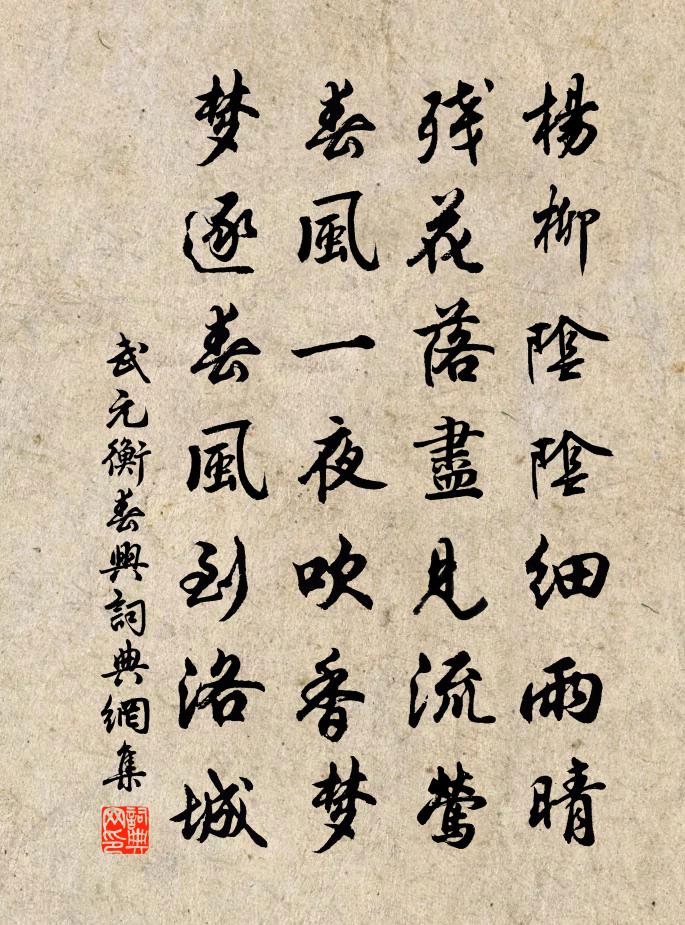 楊柳陰陰細雨晴
残花落盡見流莺
春風一夜吹香梦
梦逐春風到洛城
武元衡春興詞典網集
詞典网印